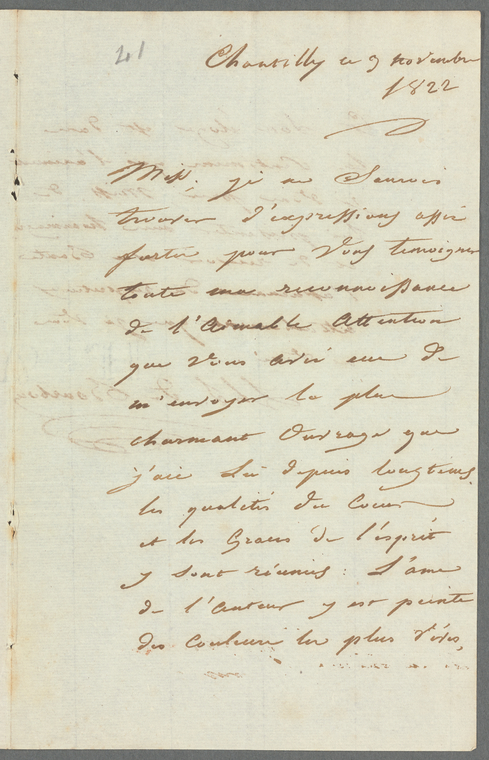 41
Chantilly ce 9 novembre
1822
Mess. je ne Saurois
trouver d'expressions assé
fortes pour Vous temoigner
toute ma reconnoissance
de l'Aimable Attention
que Vous avié eue de
m'envoyer le plus
charmant Ouvrage que
j'aie Lû depuis longtems.
les qualités du Coeur
et les Graces de l'ésprit
y sont réunies : L'âme
de l'auteur y est peinte
des couleurs les plus vives,